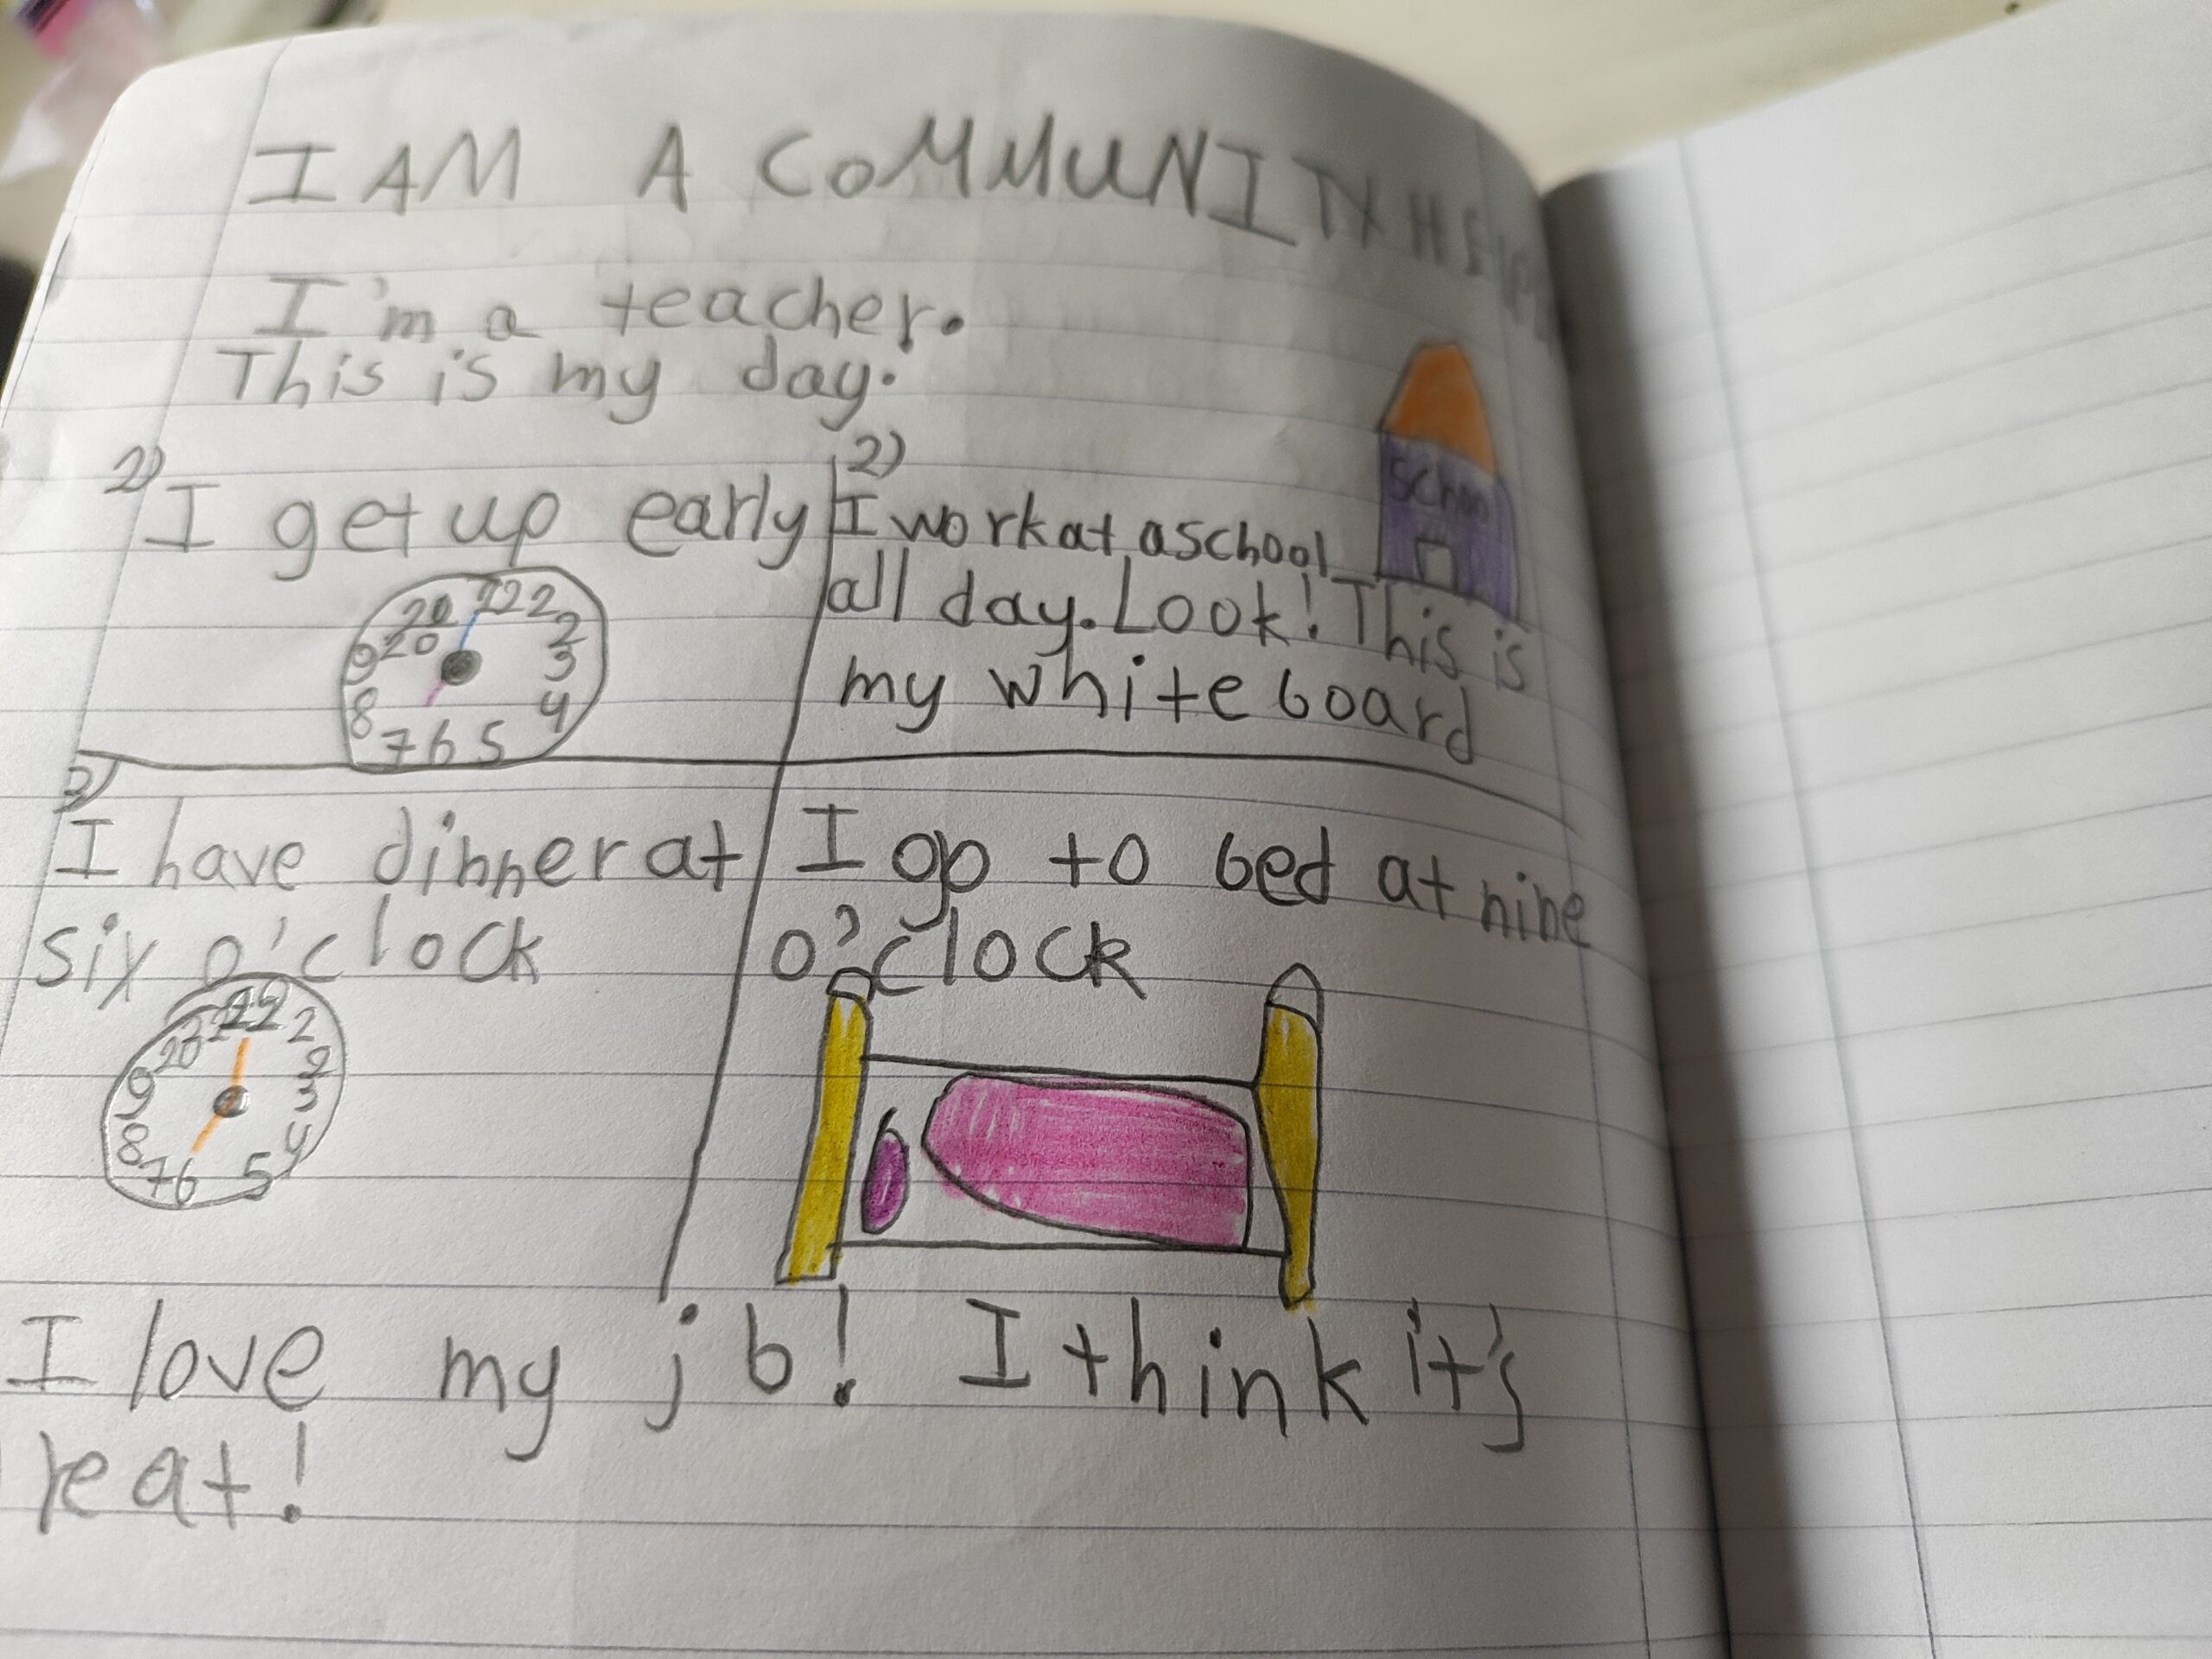 I AM A COMMUNITY HELPER
I'm a teacher.
This is my day.
2)
I get up early
20 122 2
9 20 3
8 4
7 6 5
2)
I work at a school
all day. Look! This is
my white board
School
3)
I have dinner at
six o'clock
20 22 12 2
9 2
8 3
7 6 5 4
I go to bed at nine
o'clock
I love my jb! I think it's
reat!